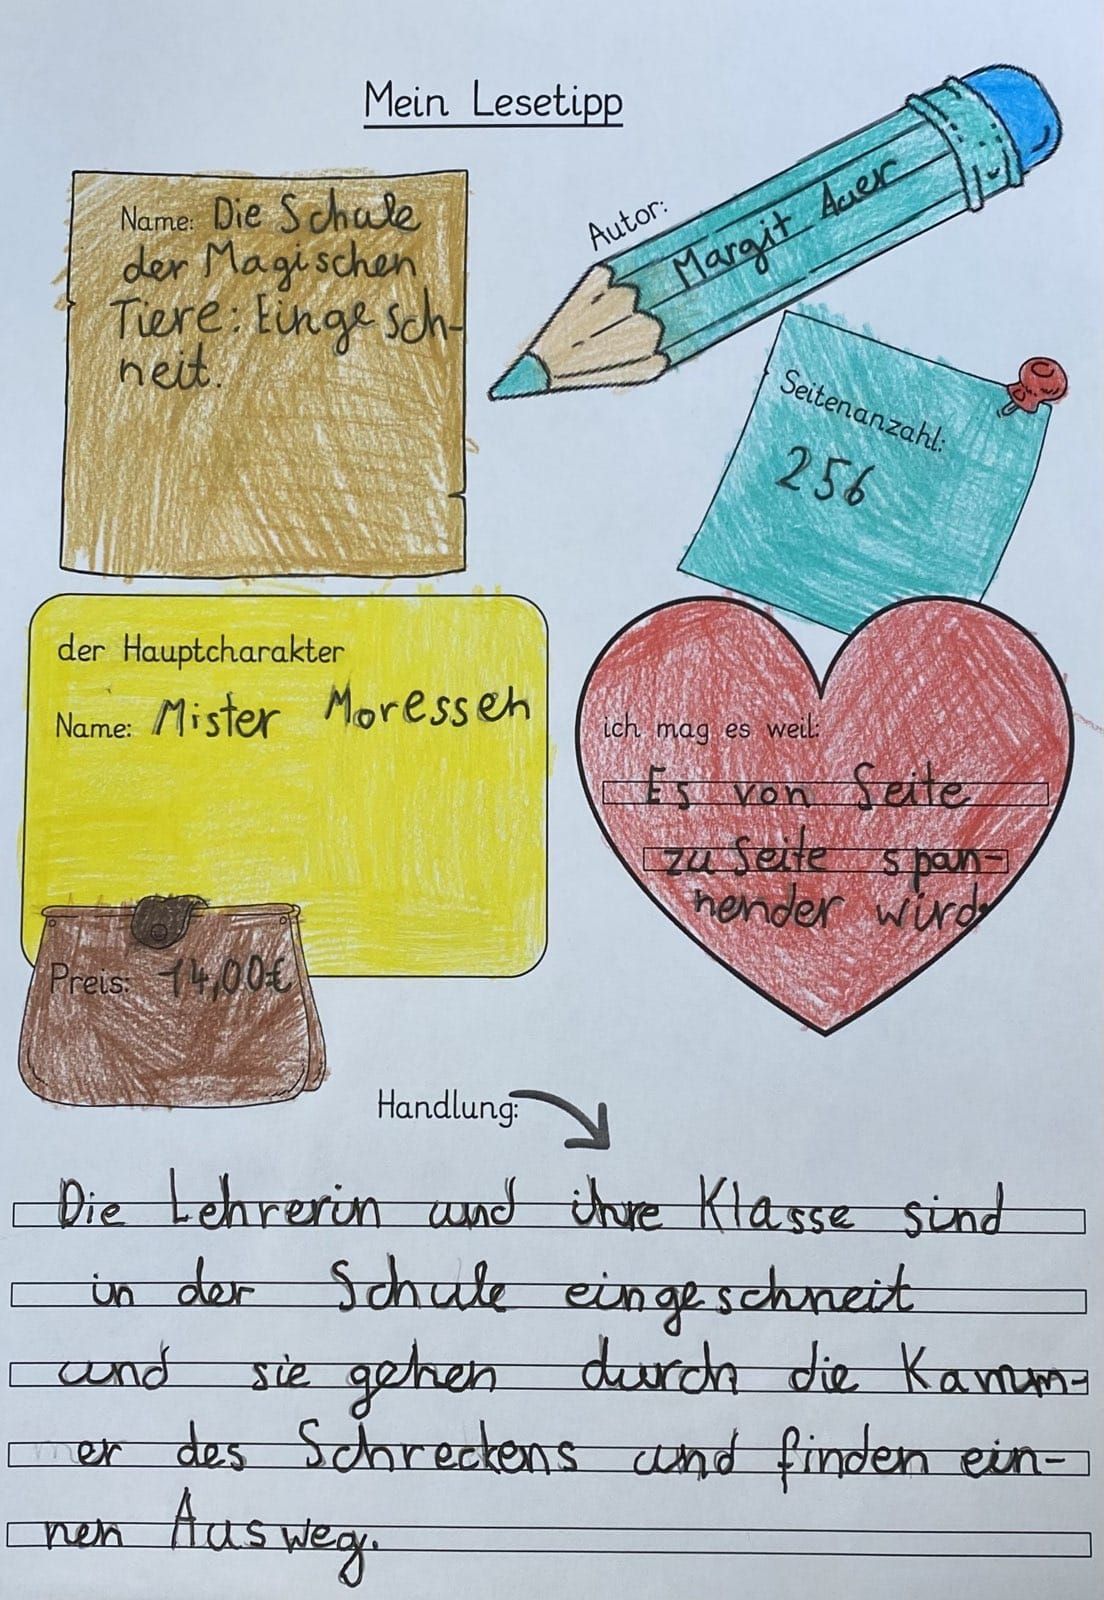 Mein Lesetipp
Name: Die Schule
der Magischen
Tiere: Eingesch-
neit.
Autor:
Margit Auer
Seitenanzahl:
256
der Hauptcharakter
Name: Mister Moressen
ich mag es weil:
Es von Seite
zu Seite span-
nender wird.
Preis: 14,00€
Handlung:
Die Lehrerin und ihre Klasse sind
in der Schule eingeschneit
und sie gehen durch die Kamm-
er des Schreckens und finden ein-
nen Ausweg.